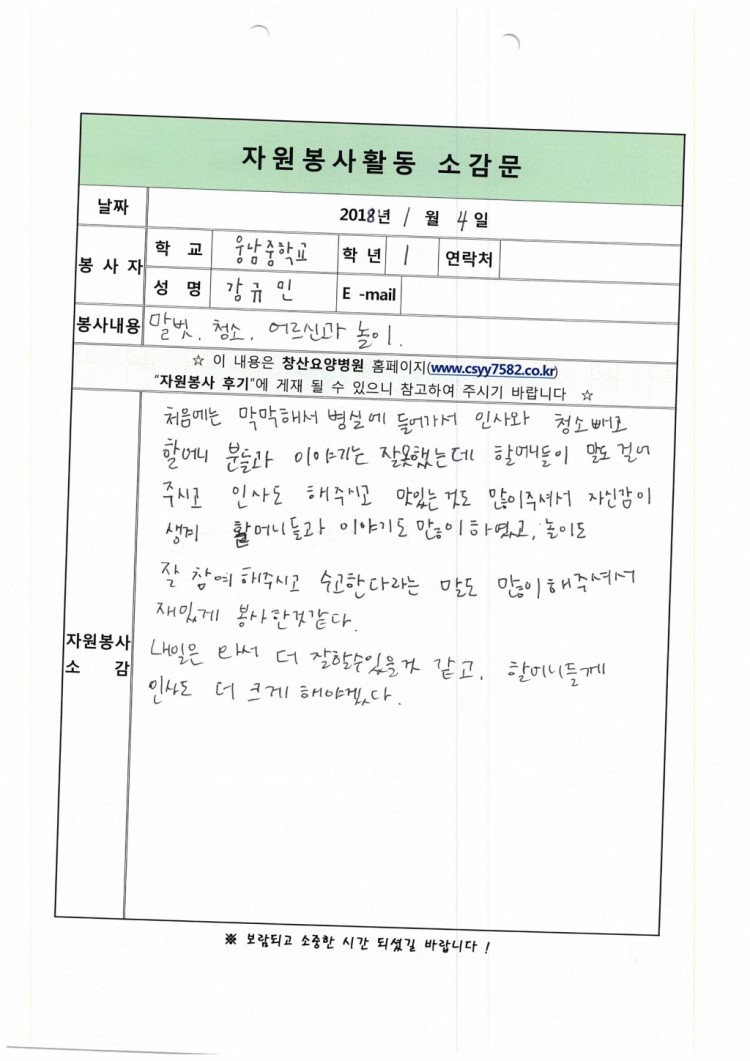 자원봉사활동 소감문
날짜 2018년 1월 4일
봉사자 학교 웅남중학교 학년 1 연락처
성명 강규민 E-mail
봉사내용 말벗, 청소, 어르신과 놀이.
☆ 이 내용은 창산요양병원 홈페이지(www.csyy7582.co.kr)
"자원봉사 후기"에 게재 될 수 있으니 참고하여 주시기 바랍니다 ☆
자원봉사
소 감
처음에는 막막해서 병실에 들어가서 인사와 청소빼고
할머니 분들과 이야기는 잘못했는데 할머니들이 말도 걸어
주시고 인사도 해주시고 맛있는것도 많이주셔서 자신감이
생겨 할머니들과 이야기도 많이 하였고, 놀이도
잘 참여해주시고 수고한다라는 말도 많이해주셔서
재밌게 봉사한것같다.
내일은 와서 더 잘할수있을것 같고, 할머니들께
인사도 더 크게 해야겠다.
※ 보람되고 소중한 시간 되셨길 바랍니다 !